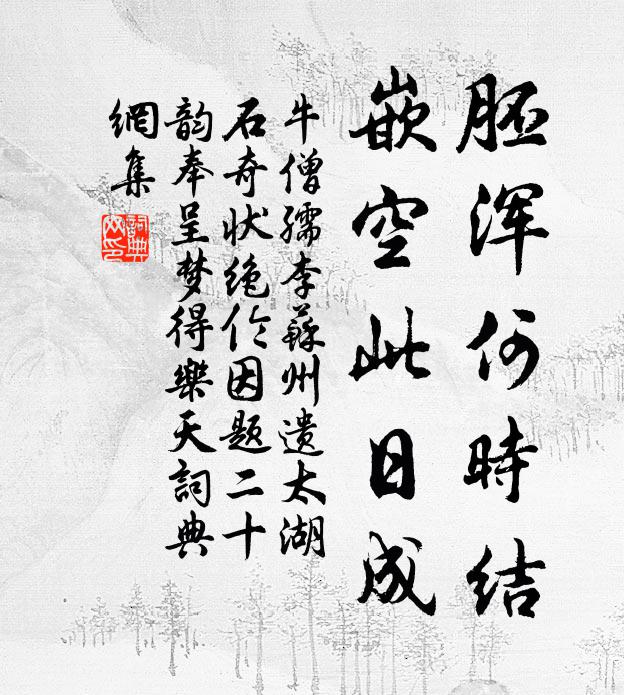 胚浑何時结
嵌空此日成
牛僧孺李蘇州遗太湖
石奇状绝伦因题二十
韵奉呈梦得樂天詞典
網集
詞典
网印